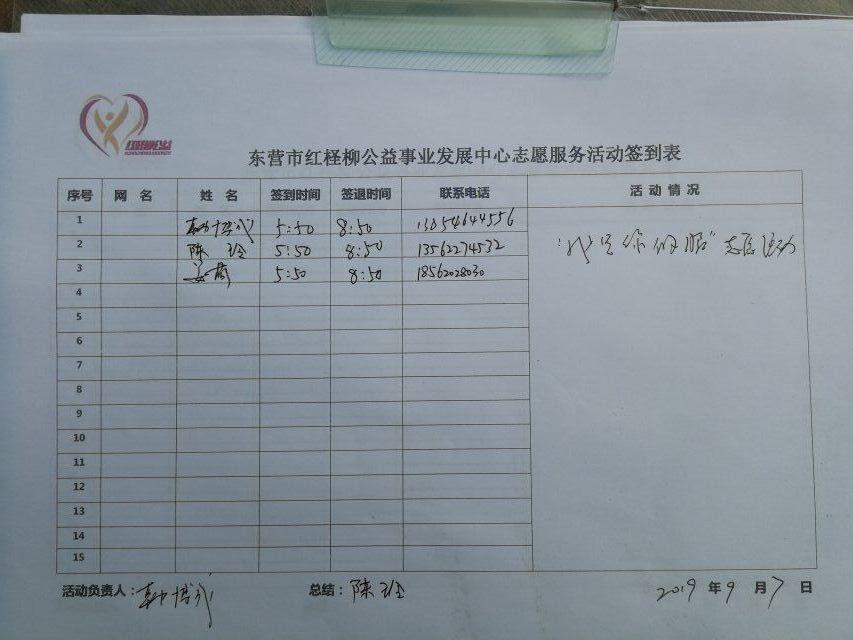 东营市红柽柳公益事业发展中心志愿服务活动签到表
序号 网 名 姓 名 签到时间 签退时间 联系电话 活 动 情 况
1 5:50 8:50 13054644556
2 陈 5:50 8:50 13562274532
3 5:50 8:50 18562028030
"我是你的眼"志愿活动
4
5
6
7
8
9
10
11
12
13
14
15
活动负责人: 总结: 陈 2019 年 9 月 7 日